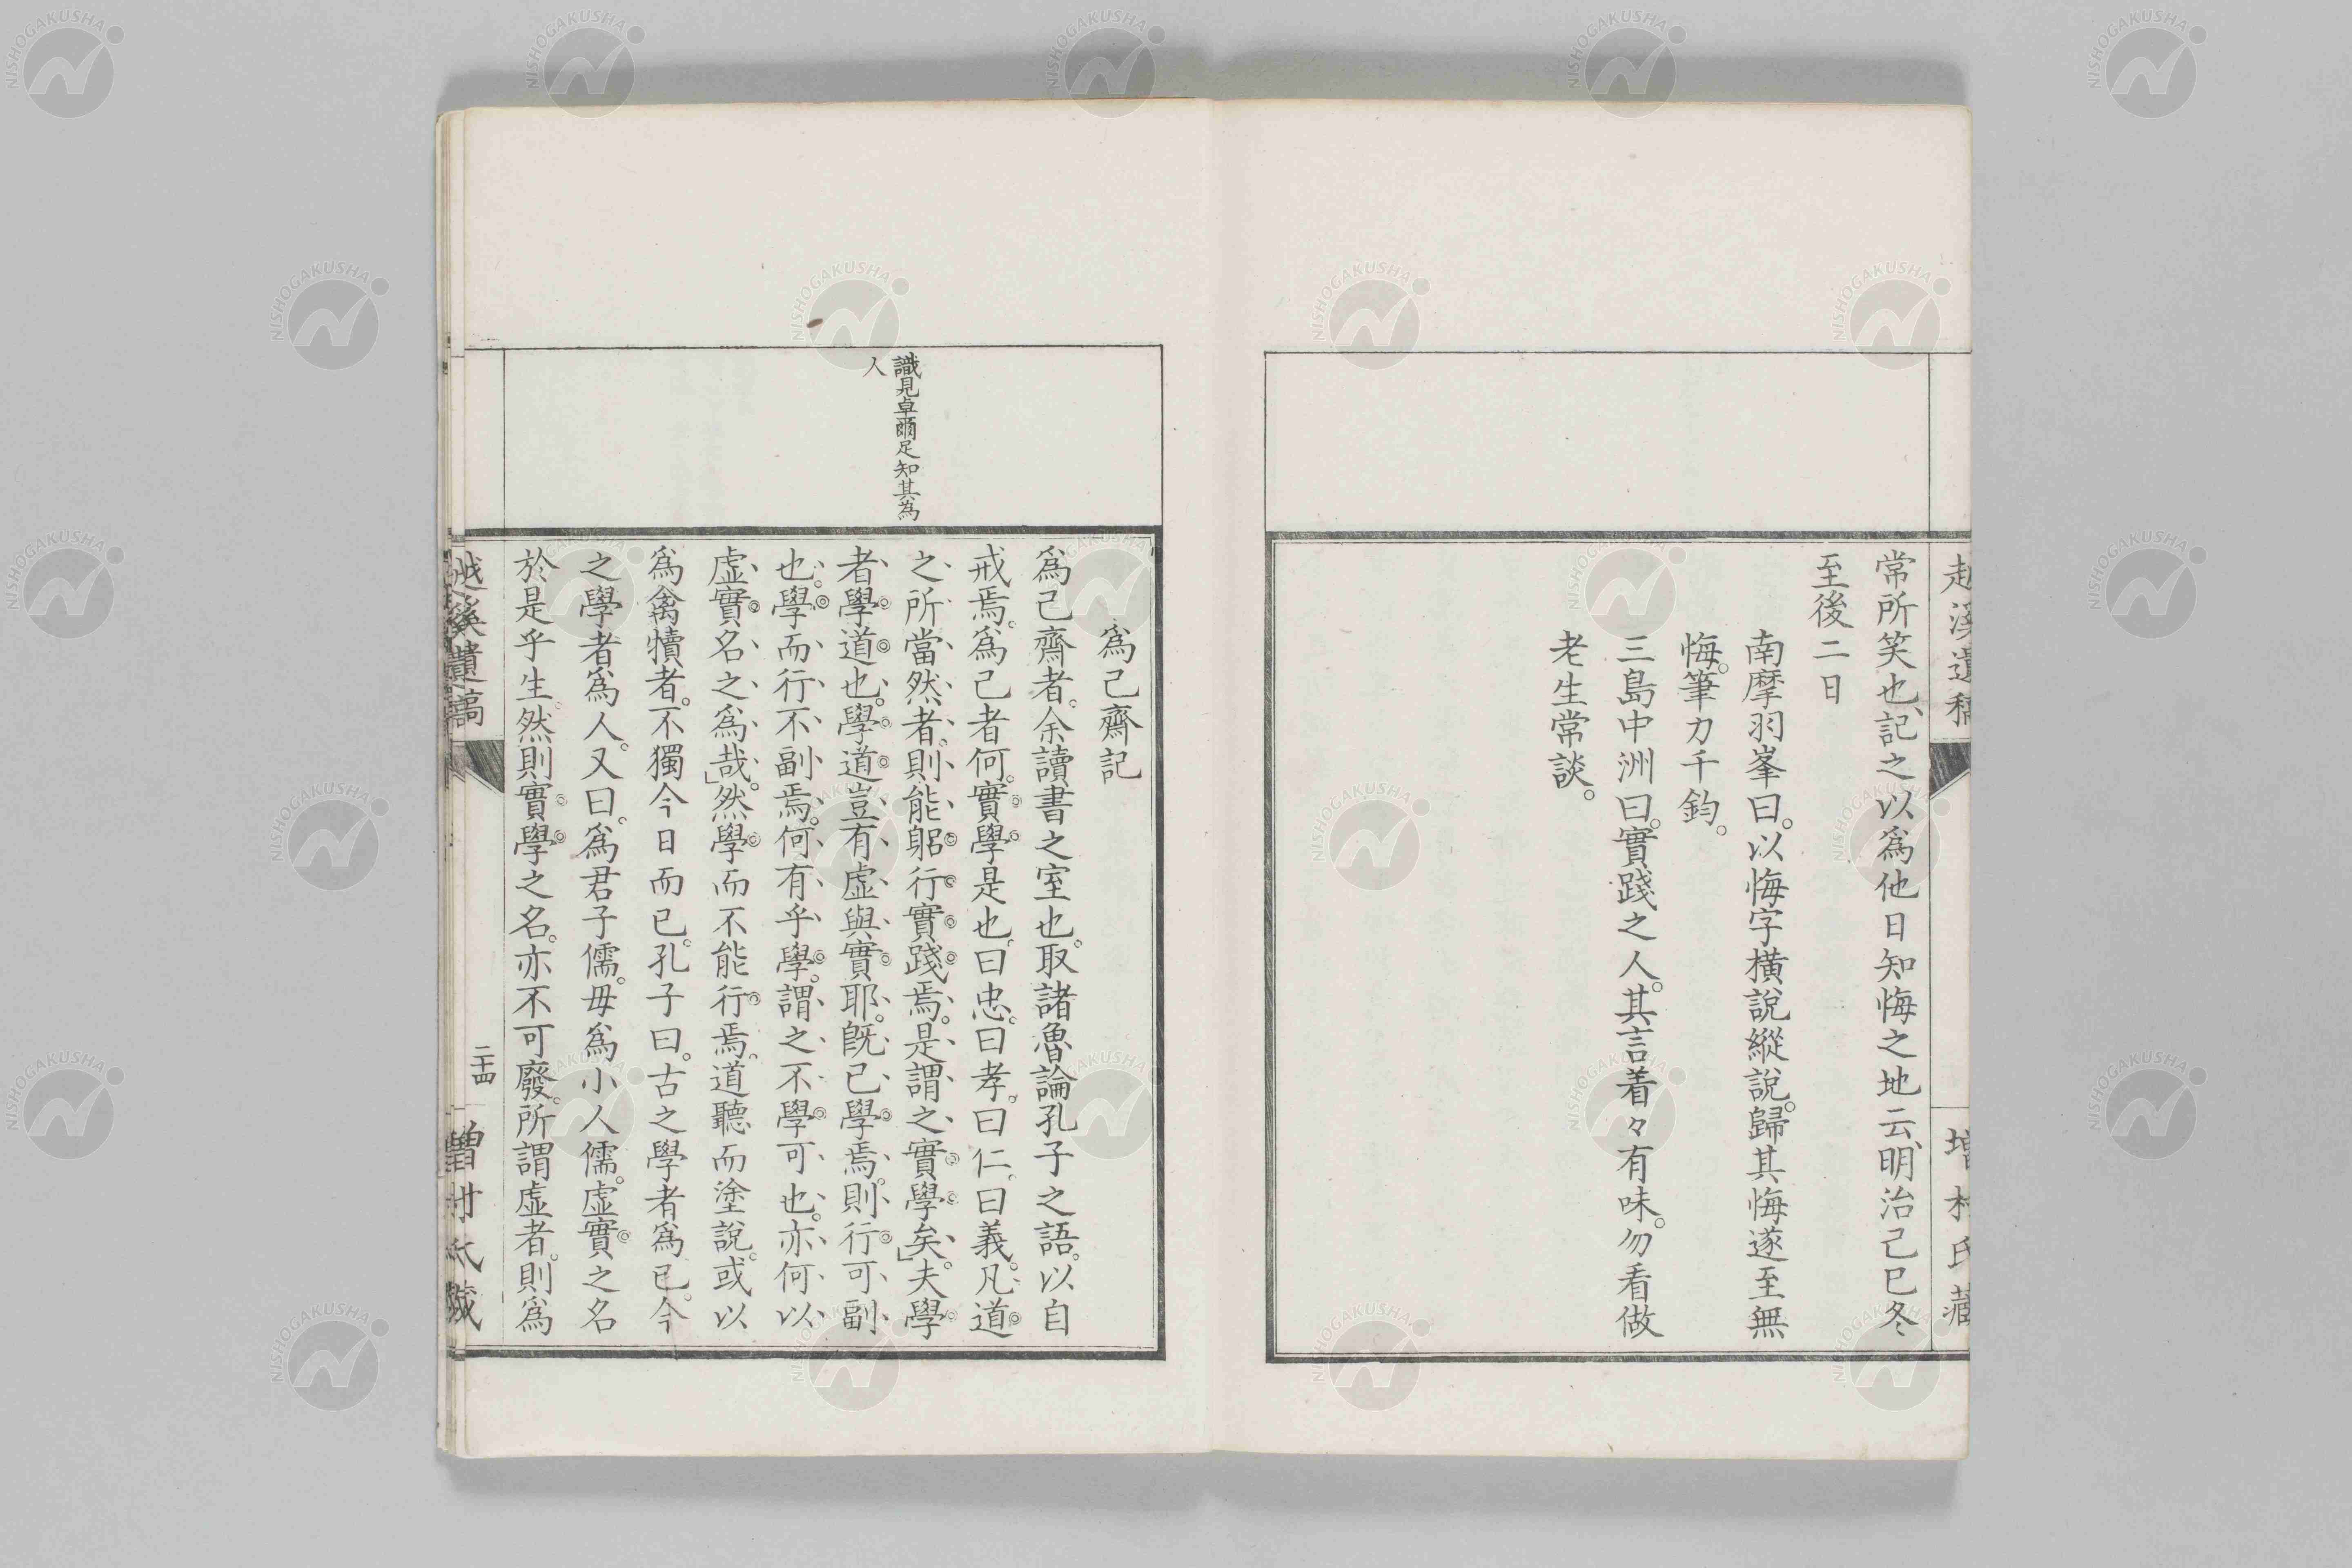 常所笑也、記之以爲他日知悔之地云、明治己巳冬
至後二日
南摩羽峯曰。以悔字橫說縱說。歸其悔遂至無
悔。筆力千鈞。
三島中洲曰。實踐之人。其言着々有味。勿看做
老生常談。
識見卓爾足知其為
人
爲己齋記
爲己齋者。余讀書之室也。取諸魯論孔子之語。以自
戒焉。爲己者何。實學是也。曰忠。曰孝。曰仁。曰義。凡道
之所當然者。則能躬行實踐焉。是謂之實學矣」。夫學
者學道也。學道豈有虛與實耶。既已學焉。則行可副
也。學而行不副焉。何有乎學。謂之不學可也。亦何以
虛實名之爲哉」。然學而不能行焉。道聽而塗說。或以
爲禽犢者。不獨今日而已。孔子曰。古之學者爲己。今
之學者爲人。又曰。爲君子儒。毋爲小人儒。虛實之名
於是乎生。然則實學之名。亦不可廢。所謂虛者。則爲
越溪遺稿
二十四
增村氏藏
NISHOGAKUSHA